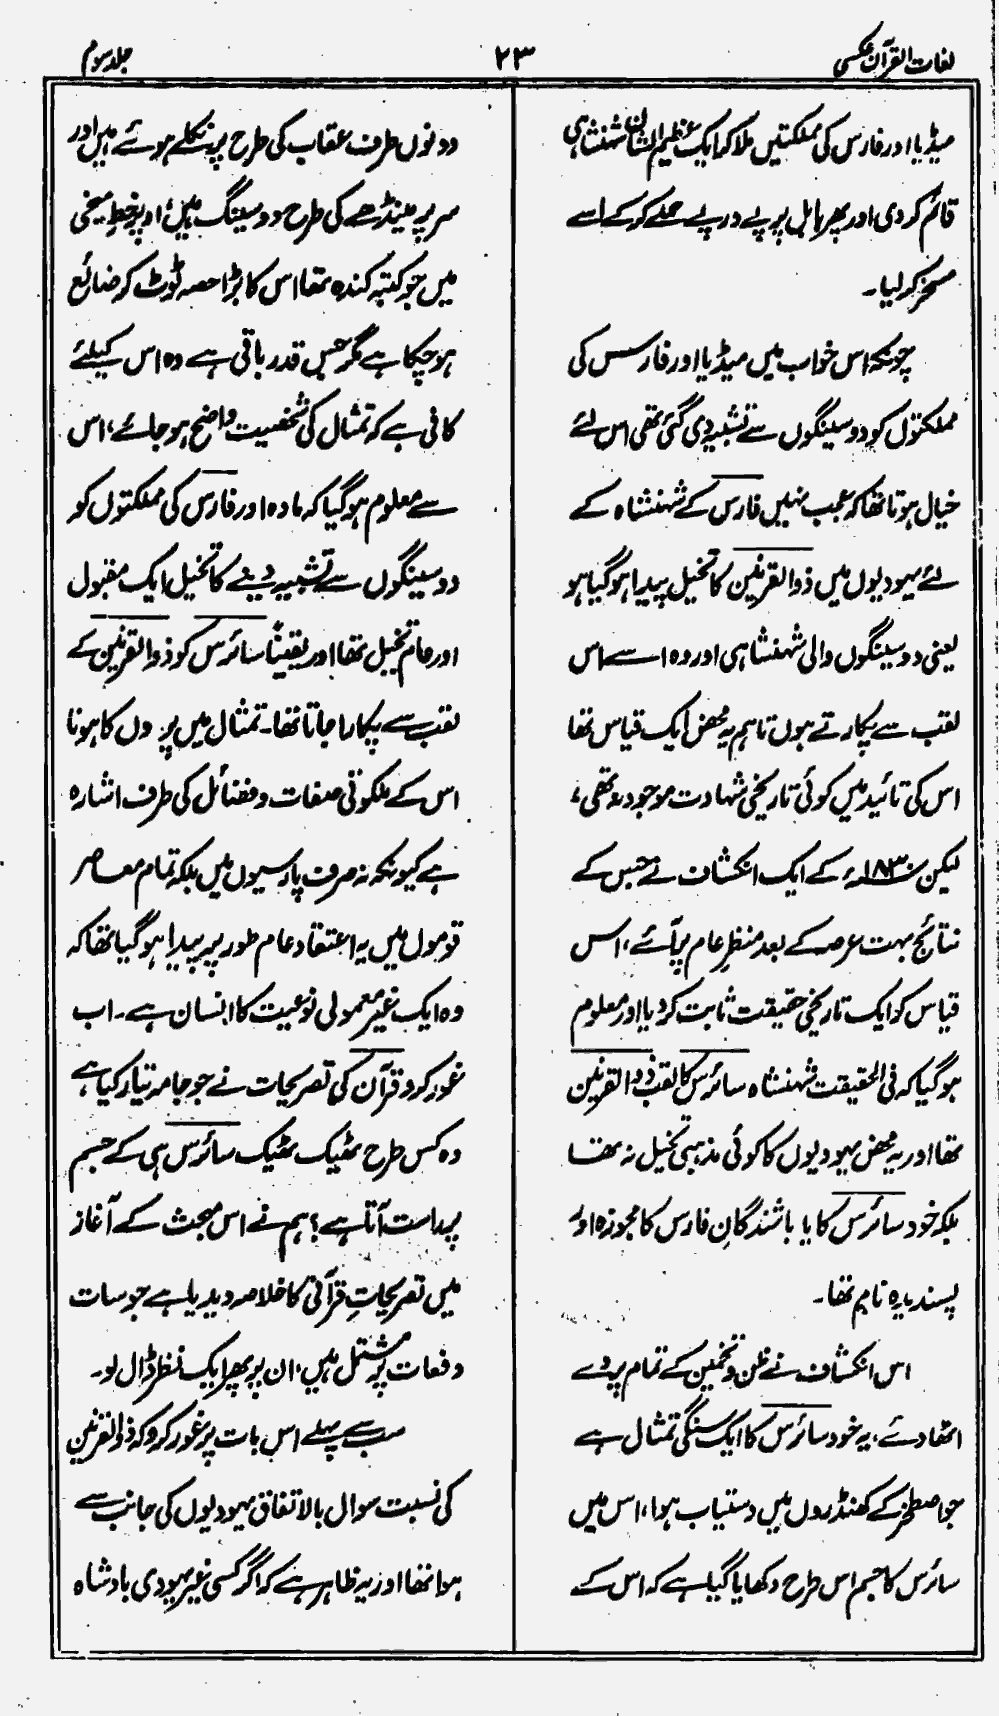 لغات القرآن عکسی
۲۳
جلد سوم
میڈیا اور فارس کی مملکتیں ملا کر ایک عظیم الشان شہنشاہی
قائم کر دی اور پھر بابل پر پے در پے حملے کر کے اسے
مسخر کر لیا۔
چونکہ اس خواب میں میڈیا اور فارس کی
مملکتوں کو دو سینگوں سے تشبیہ دی گئی تھی اس لئے
خیال ہوتا تھا کہ عجب نہیں فارس کے شہنشاہ کے
لئے یہودیوں میں ذوالقرنین کا تخیل پیدا ہو گیا ہو
یعنی دو سینگوں والی شہنشاہی اور وہ اسے اس
لقب سے پکارتے ہوں تاہم یہ محض ایک قیاس تھا
اس کی تائید میں کوئی تاریخی شہادت موجود نہ تھی،
لیکن ۱۸۳۸ء کے ایک انکشاف نے جس کے
نتائج بہت عرصہ کے بعد منظرِ عام پر آئے، اس
قیاس کو ایک تاریخی حقیقت ثابت کر دیا اور معلوم
ہو گیا کہ فی الحقیقت شہنشاہ سائرس کا لقب ذوالقرنین
تھا اور یہ محض یہودیوں کا کوئی مذہبی تخیل نہ تھا
بلکہ خود سائرس کا یا باشندگانِ فارس کا مجوزہ اور
پسندیدہ نام تھا۔
اس انکشاف نے ظن و تخمین کے تمام پردے
اٹھا دئے، یہ خود سائرس کا ایک سنگی تمثال ہے
جو اصطخر کے کھنڈروں میں دستیاب ہوا، اس میں
سائرس کا جسم اس طرح دکھایا گیا ہے کہ اس کے
دونوں طرف عقاب کی طرح پر نکلے ہوئے ہیں اور
سر پر مینڈھے کی طرح دو سینگ ہیں، اوپر خطِ میخی
میں جو کتبہ کندہ تھا اس کا بڑا حصہ ٹوٹ کر ضائع
ہو چکا ہے مگر جس قدر باقی ہے وہ اس کیلئے
کافی ہے کہ تمثال کی شخصیت واضح ہو جائے، اس
سے معلوم ہو گیا کہ مادہ اور فارس کی مملکتوں کو
دو سینگوں سے تشبیہ دینے کا تخیل ایک مقبول
اور عام تخیل تھا اور یقیناً سائرس کو ذوالقرنین کے
لقب سے پکارا جاتا تھا۔ تمثال میں پروں کا ہونا
اس کے ملکوتی صفات و فضائل کی طرف اشارہ
ہے کیونکہ نہ صرف پارسیوں میں بلکہ تمام معاصر
قوموں میں یہ اعتقاد عام طور پر پیدا ہو گیا تھا کہ
وہ ایک غیر معمولی نوعیت کا انسان ہے۔ اب
غور کرو قرآن کی تصریحات نے جو جامہ تیار کیا ہے
وہ کس طرح ٹھیک ٹھیک سائرس ہی کے جسم
پر راست آتا ہے؟ ہم نے اس مبحث کے آغاز
میں تصریحاتِ قرآنی کا خلاصہ دیدیا ہے جو سات
دفعات پر مشتمل ہیں، ان پر پھر ایک نظر ڈال لو۔
سب سے پہلے اس بات پر غور کرو کہ ذوالقرنین
کی نسبت سوال بالاتفاق یہودیوں کی جانب سے
ہوا تھا اور یہ ظاہر ہے کہ اگر کسی غیر یہودی بادشاہ